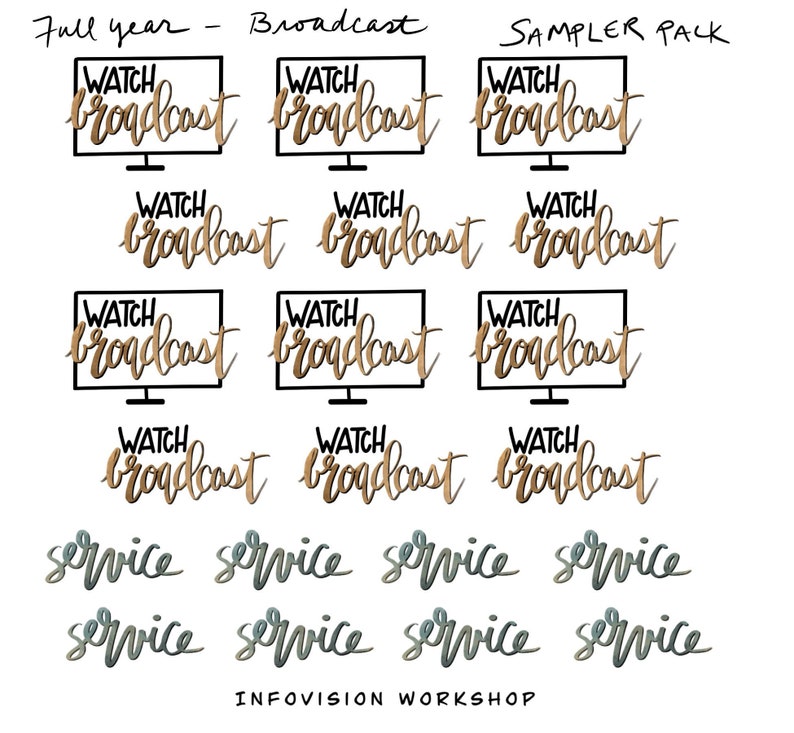 Full year - Broadcast SAMPLER PACK
WATCH WATCH WATCH
broadcast broadcast broadcast
WATCH WATCH WATCH
broadcast broadcast broadcast
WATCH WATCH WATCH
broadcast broadcast broadcast
WATCH WATCH WATCH
broadcast broadcast broadcast
service service service service
service service service service
INFOVISION WORKSHOP